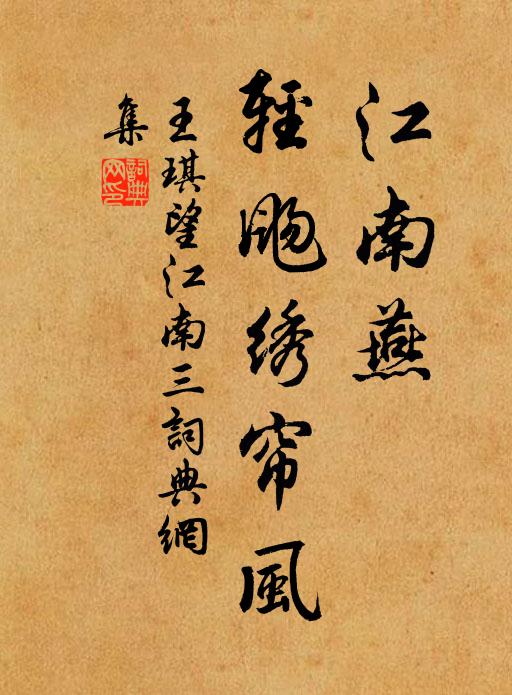 江南燕
輕颺綉帘風
王琪望江南三詞典網
集
詞典
网印